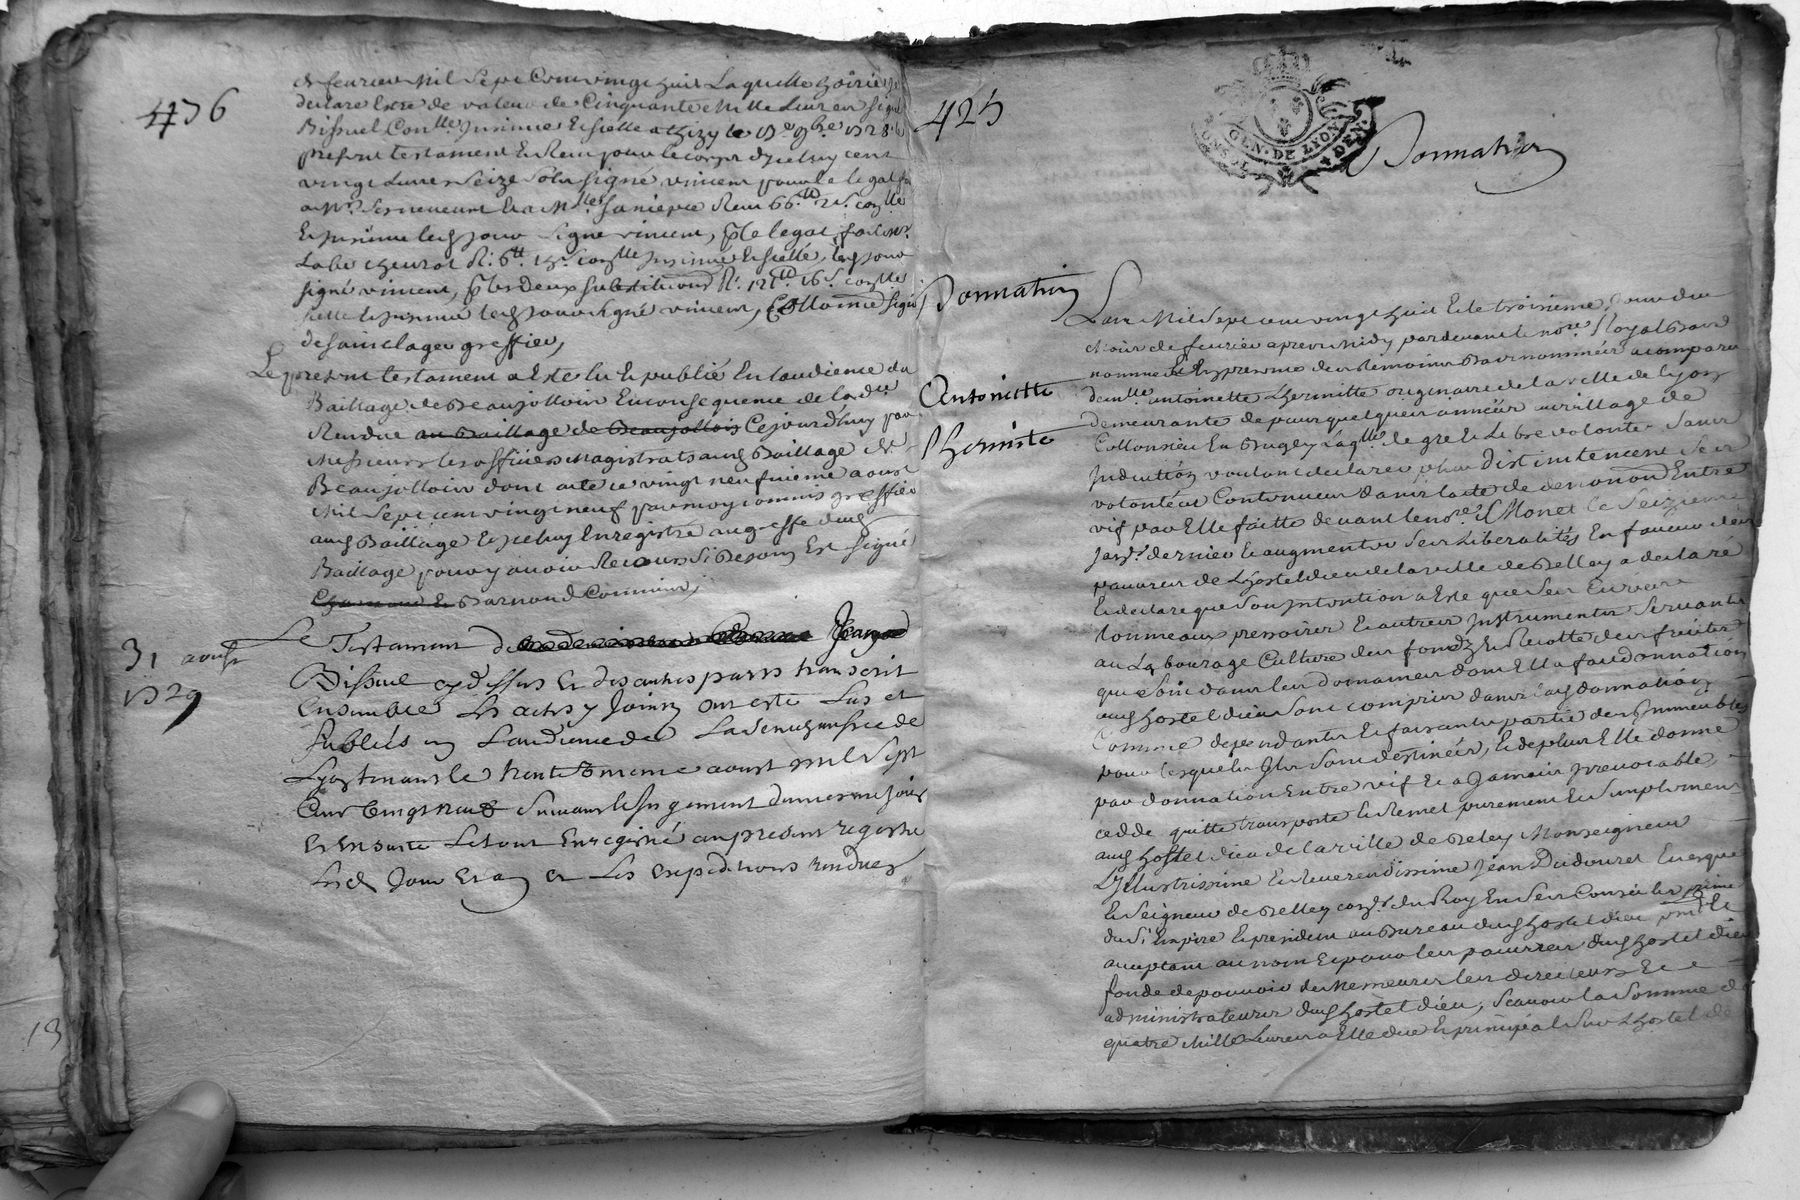 436
de feurier Mil Sept Cent vingt huit Laquelle hoirie
declare Estre de valeur de Cinquante Mille Liures signé
Bissuel Con.lle Insinué Et scellé a thizy le 19e 9bre 1728. le
present testament Et Receu pour le corps d'iceluy cent
vingt Liures seize sols signé vincent pour le legat
Receu 66.tt
Et Insinué lesd Jour signé vincent, p.r le legat fait
Labé R. 6tt Insinué Et scellé, lesd Jour
signé vincent, p.r les deux substitutions R. 121tt 16s. con.lle
scellé et Insinué lesd Jour signé vincent, Collationné signé
desainclager greffier,
Le present testament a Este lu Et publié En Laudience du
Baillage de Beaujollois En consequence de lord.ce
Rendue au Baillage de Beaujollois Cejourd'huy par
Messieurs les officiers Magistrats aud Baillage de
Beaujollois dont acte ce vingt neufuieme aoust
Mil Sept cent vingt neuf par moy commis greffier
aud Baillage Et iceluy Enregistré au greffe dud
Baillage pour y auoir Recours Si Besoin Est signé
Barnoud Commis,
31 aoust
1729
Le Testament de Jeanne
Bissuel cy dessus et des autres parts transcrit
Ensemble les actes y Joints ont esté Lus et
Publiés en Laudience de La Senechaussée de
Lyon tenant le trente Unieme aoust mil Sept
Cent Vingt neuf Suiuant le Jugement du mesme jour
et Ensuite Le tout Enregistré au present registre
Lesd Jour et an et Les expeditions rendues
425
GEN. DE LYON
Donnation
Donnation
Antoinette
Lhermite
Lan Mil Sept cent vingt huit Et le troisieme Jour du
Mois de feurier apres Midy pardeuant le no.re Royal Bas
nommé Et En presence des Temoins Bas nommés a comparu
dem.lle antoinette Lhermitte originaire de la ville de Lyon
demeurante depuis quelques années au village de
Collonsieu En Bugey Laq.lle de gré Et Libre volonté Sans
Induction voulant declarer plus distinctement Ses
volontés Contenues dans lacte de donnaon Entre
vif par Elle faitte deuant le no.re Monet le Seizieme
Jan.r dernier Et augmenter Ses Liberalités En faueur des
pauures de Lhostel dieu de la ville de Belley a declaré
Et declare que Son Intention a Esté que Ses Cuues
tonneaux pressoires Et autres Instruments Seruants
au Labourage Culture des fonds Et Recolte des fruits
qui Sont dans les Domaines dont Elle a fait donnation
aud hostel dieu Sont compris dans lad donnation
Comme dependants Et faisants partie des Immeubles
pour lesquels Ils Sont destinés, Et de plus Elle donne
par donnation Entre vif Et a Jamais Irreuocable,
cedde quitte transporte Et Remet purement Et Simplement
aud hostel dieu de la ville de Beley Monseigneur
Lillustrissime Et Reuerendissime Jean Dudouset Euesque
Et Seigneur de Belley con.er du Roy En Ses Conseils prince
du S.t Empire Et president au Bureau dud hostel dieu pnt Et
acceptant au nom Et pour les pauures dud hostel dieu
fondé de pouuoir de Messieurs les directeurs Et
administrateurs dud hostel dieu, Scauoir la Somme de
quatre Mille Liures a Elle due En principal Sur Lhostel de
13